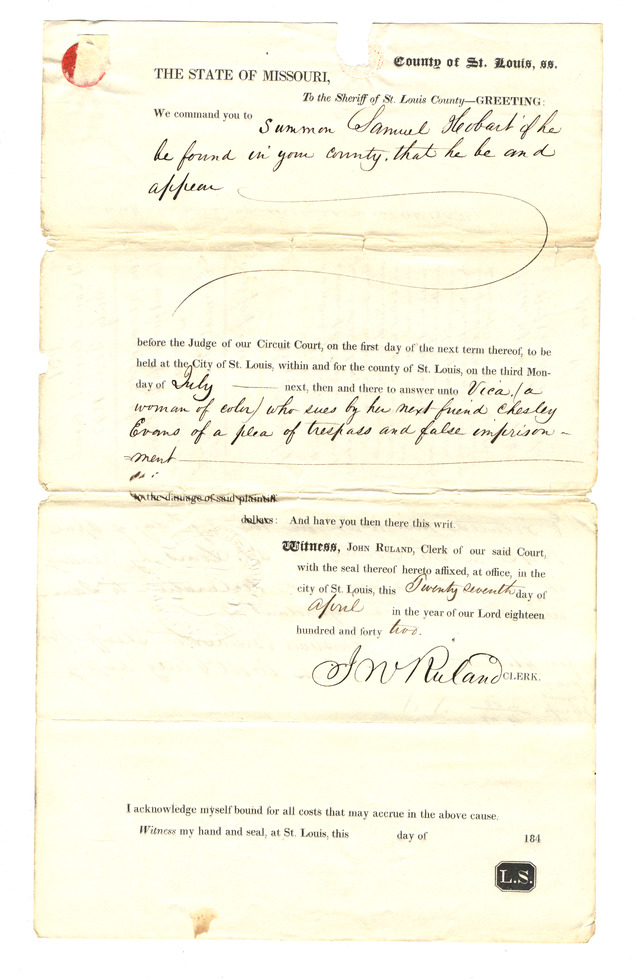 County of St. Louis, ss.
THE STATE OF MISSOURI,
To the Sheriff of St. Louis County—GREETING:
We command you to summon Samuel Hobart if he
be found in your county, that he be and
appear
before the Judge of our Circuit Court, on the first day of the next term thereof, to be
held at the City of St. Louis, within and for the county of St. Louis, on the third Mon-
day of July next, then and there to answer unto Vica, (a
woman of color) who sues by her next friend Chesley
Evans of a plea of trespass and false imprison-
ment
to the damage of said plaintiff
dollars: And have you then there this writ.
Witness, JOHN RULAND, Clerk of our said Court,
with the seal thereof hereto affixed, at office, in the
city of St. Louis, this Twenty seventh day of
April in the year of our Lord eighteen
hundred and forty two.
J W Ruland CLERK.
I acknowledge myself bound for all costs that may accrue in the above cause.
Witness my hand and seal, at St. Louis, this day of 184
L.S.